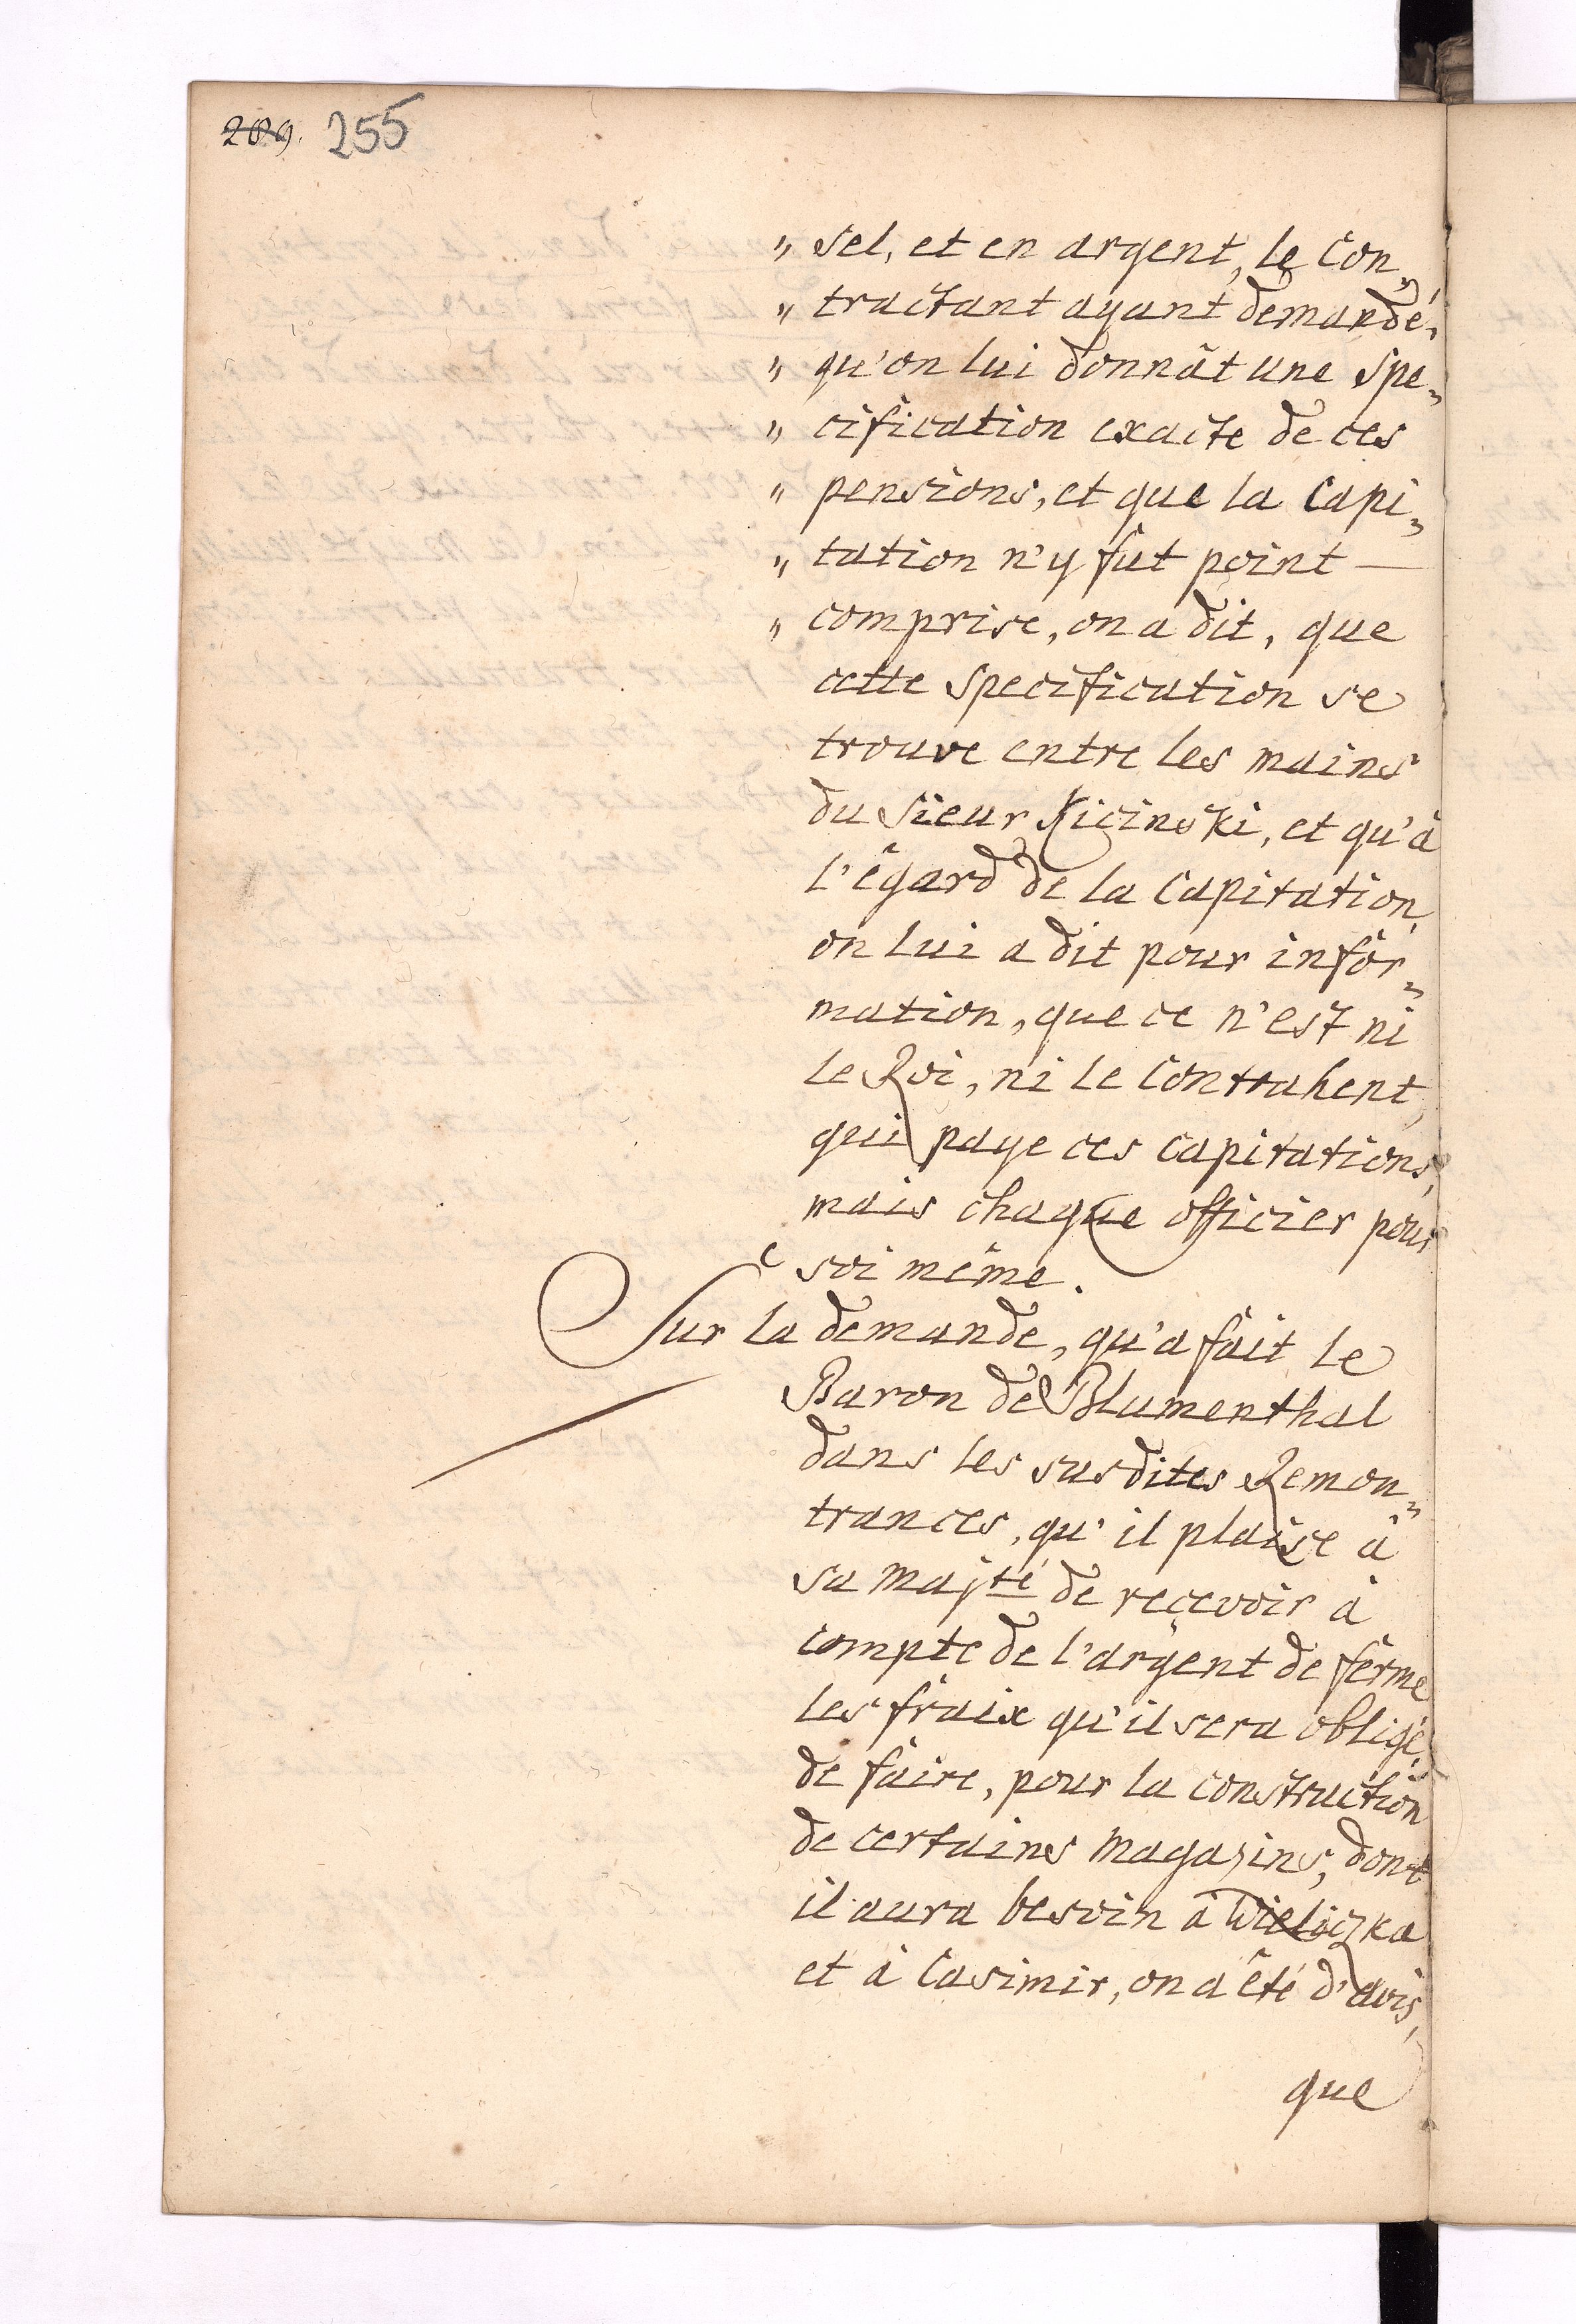 289. 255
„ sel, et en argent, le Con„
„ tractant ayant demandé,
„ qu'on lui donnât une spe„
„ cification exacte de ces
„ pensions, et que la Capi„
„ tation n'y fut point —
„ comprise, on a dit, que
cette specification se
trouve entre les mains
du Sieur Kicinski, et qu'à
l'êgard de la Capitation,
on lui a dit pour infor„
mation, que ce n'est ni
le Roi, ni le Contrahent,
qui paye ces Capitations,
mais chaque officier pour
soi même.
Sur la demande, qu'a fait le
Baron de Blumenthal
dans les susdites Remon„
trances, qu'il plaise à
sa Majté de reçevoir à
compte de l'argent de ferme
les fraix qu'il sera obligé,
de faire, pour la construction
de certains Magazins, dont
il aura besoin à Wieliczka
et à Casimir, on a êté d'avis,
que